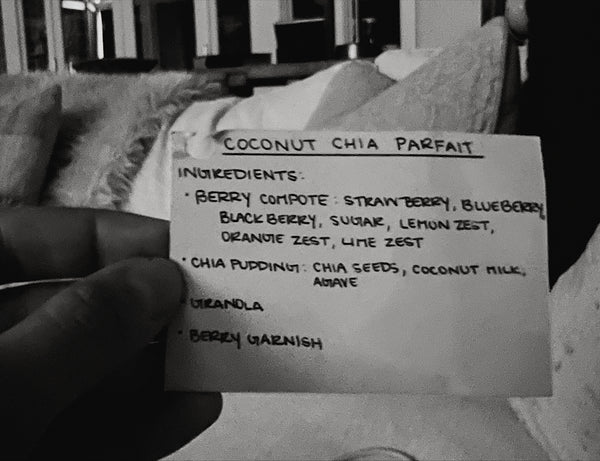 COCONUT CHIA PARFAIT
INGREDIENTS:
• BERRY COMPOTE: STRAWBERRY, BLUEBERRY,
BLACKBERRY, SUGAR, LEMON ZEST,
ORANGE ZEST, LIME ZEST
• CHIA PUDDING: CHIA SEEDS, COCONUT MILK,
AGAVE
• GRANOLA
• BERRY GARNISH